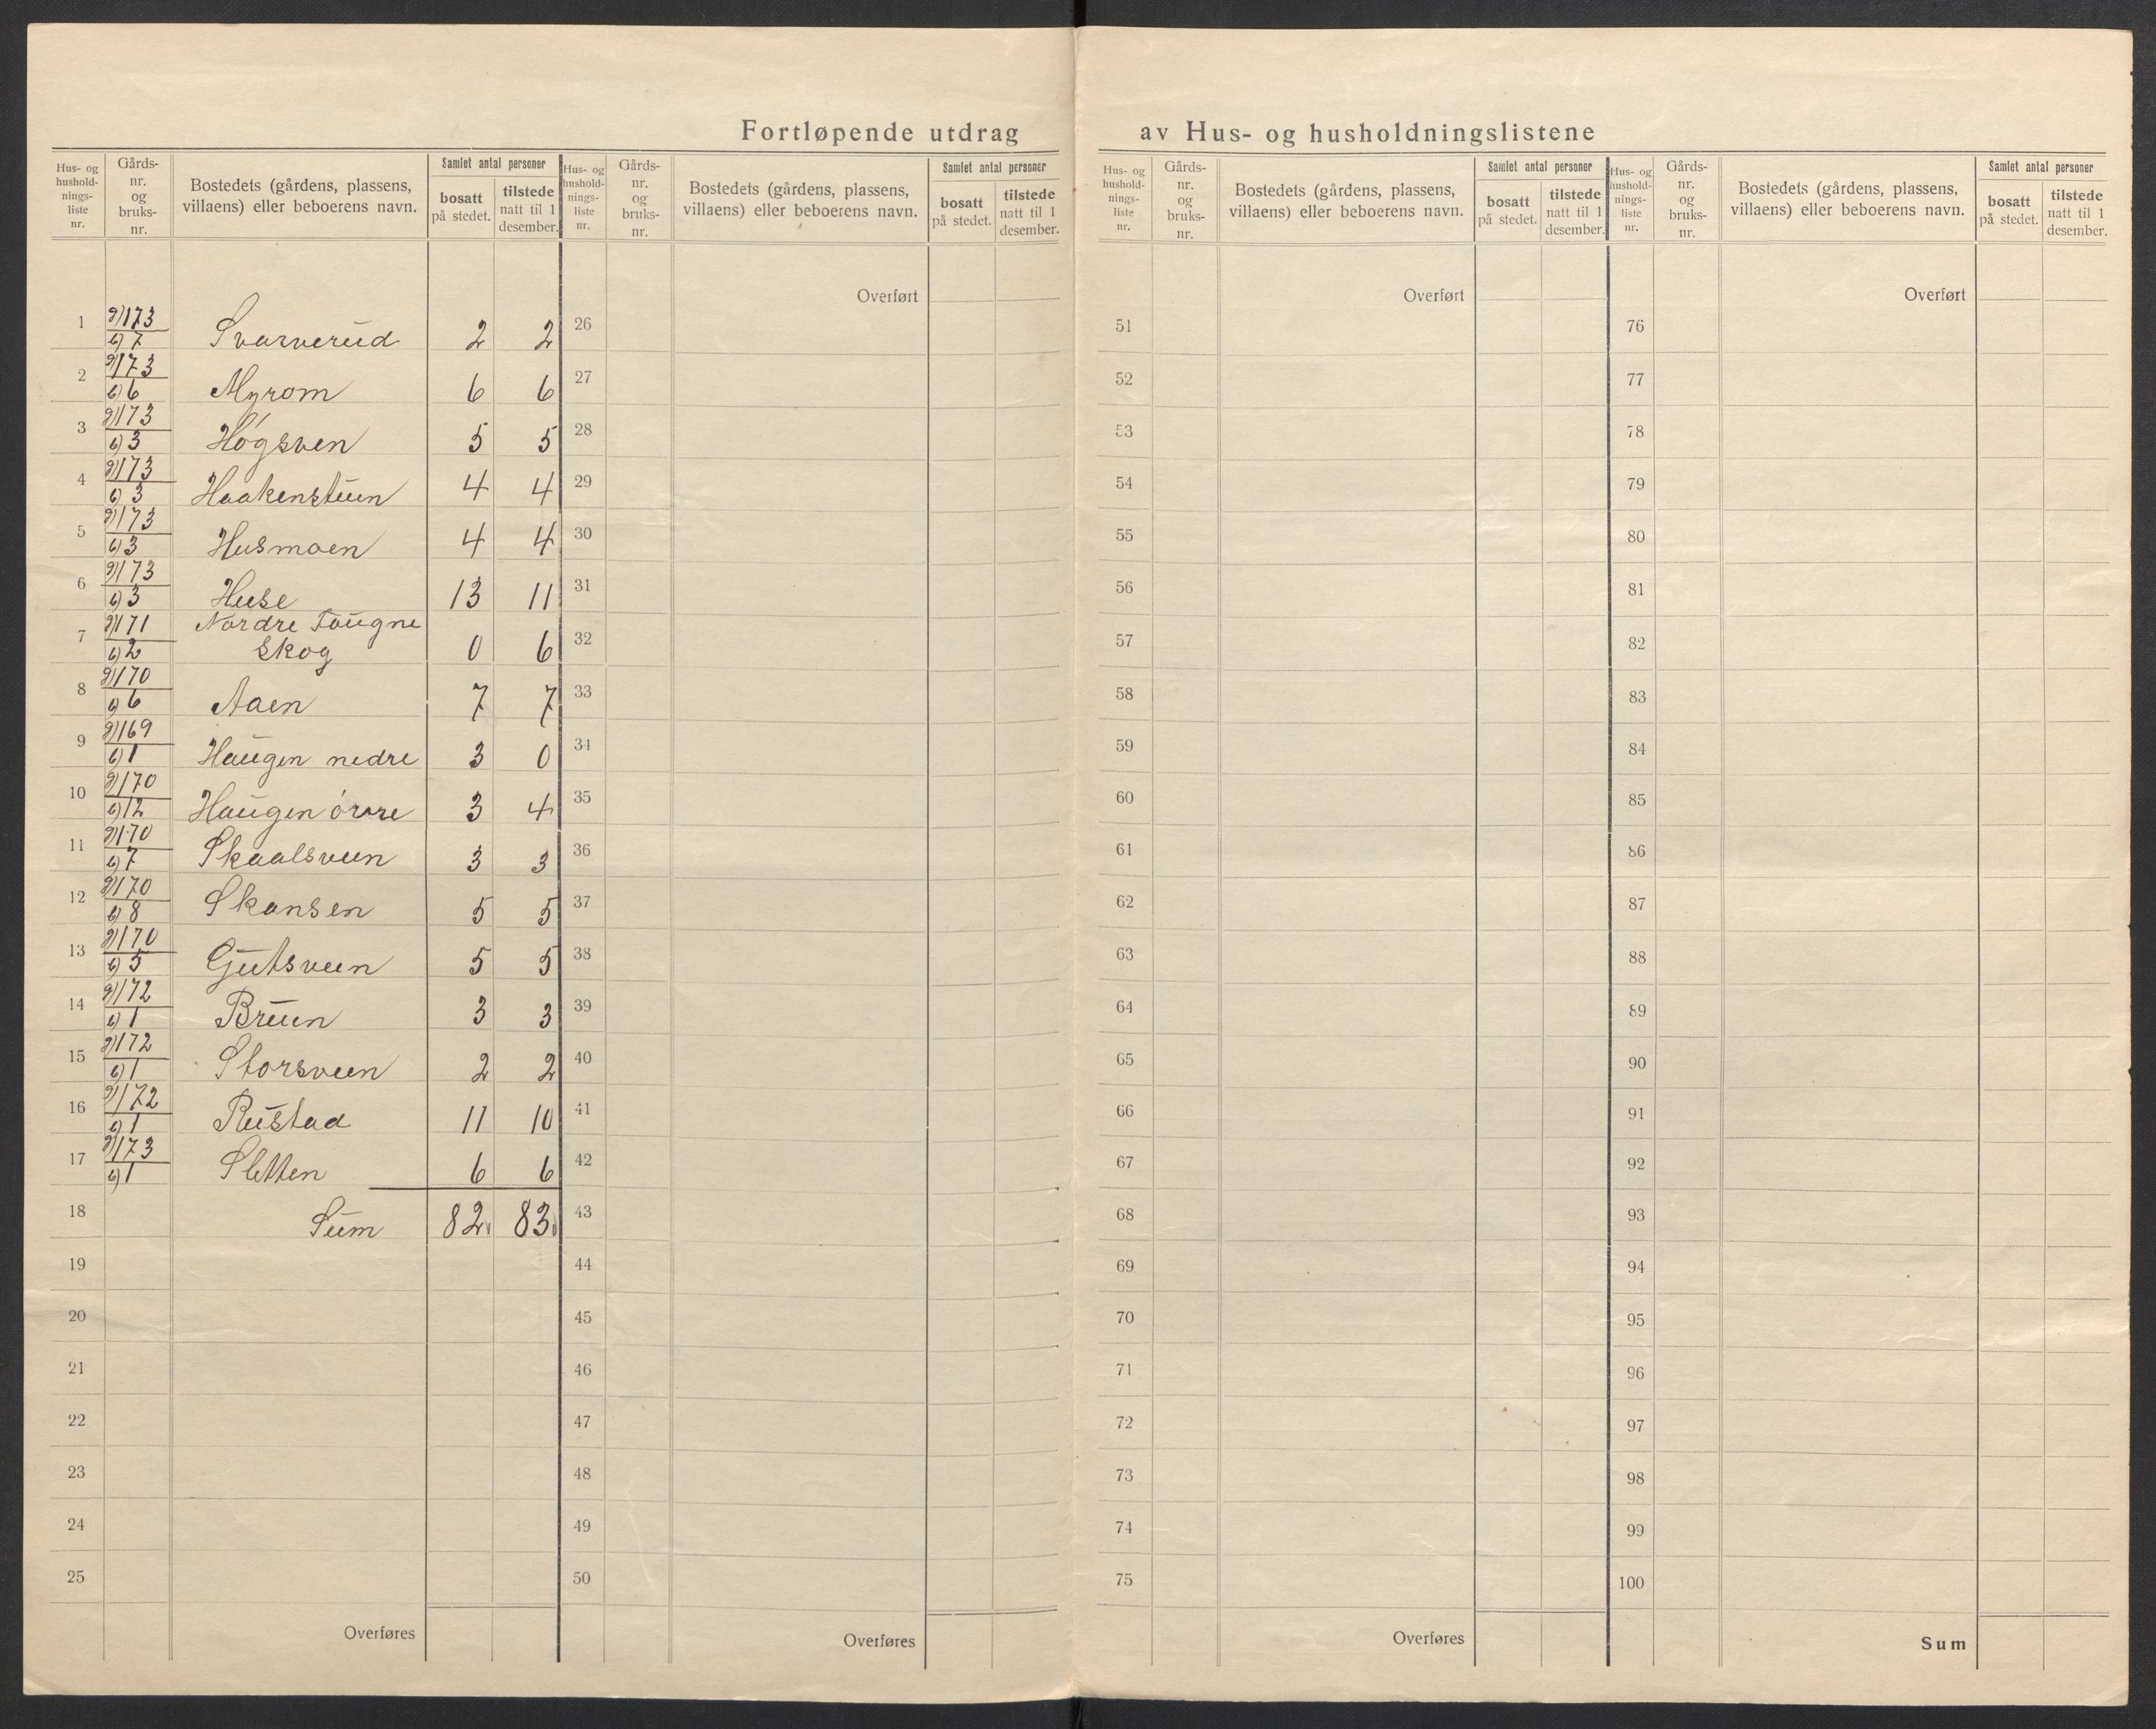 Fortløpende utdrag av Hus- og husholdningslistene
Hus- og hushold-nings-liste nr. | Gårds-nr. og bruks-nr. | Bostedets (gårdens, plassens, villaens) eller beboerens navn. | Samlet antal personer bosatt på stedet. | tilstede natt til 1 desember.
Hus- og hushold-nings-liste nr. | Gårds-nr. og bruks-nr. | Bostedets (gårdens, plassens, villaens) eller beboerens navn. | Samlet antal personer bosatt på stedet. | tilstede natt til 1 desember.
Hus- og hushold-nings-liste nr. | Gårds-nr. og bruks-nr. | Bostedets (gårdens, plassens, villaens) eller beboerens navn. | Samlet antal personer bosatt på stedet. | tilstede natt til 1 desember.
Hus- og hushold-nings-liste nr. | Gårds-nr. og bruks-nr. | Bostedets (gårdens, plassens, villaens) eller beboerens navn. | Samlet antal personer bosatt på stedet. | tilstede natt til 1 desember.
1 g)173 b)7 Svarverud 2 2
2 g)173 b)6 Myrom 6 6
3 g)173 b)3 Høgsven 5 5
4 g)173 b)3 Haakensteen 4 4
5 g)173 b)3 Husmoen 4 4
6 g)173 b)3 Huse 13 11
7 g)171 b)2 Nordre Fougne
Skog 0 6
8 g)170 b)6 Aaen 7 7
9 g)169 b)1 Haugen nedre 3 0
10 g)170 b)12 Haugen övre 3 4
11 g)170 b)7 Skaalsveen 3 3
12 g)170 b)8 Skansen 5 5
13 g)170 b)5 Gutsveen 5 5
14 g)172 b)1 Bruen 3 3
15 g)172 b)1 Storsveen 2 2
16 g)172 b)1 Rustad 11 10
17 g)173 b)1 Sletten 6 6
18 Sum 82 83
19
20
21
22
23
24
25
Overføres
Overført
26
27
28
29
30
31
32
33
34
35
36
37
38
39
40
41
42
43
44
45
46
47
48
49
50
Overføres
Overført
51
52
53
54
55
56
57
58
59
60
61
62
63
64
65
66
67
68
69
70
71
72
73
74
75
Overføres
Overført
76
77
78
79
80
81
82
83
84
85
86
87
88
89
90
91
92
93
94
95
96
97
98
99
100
Sum